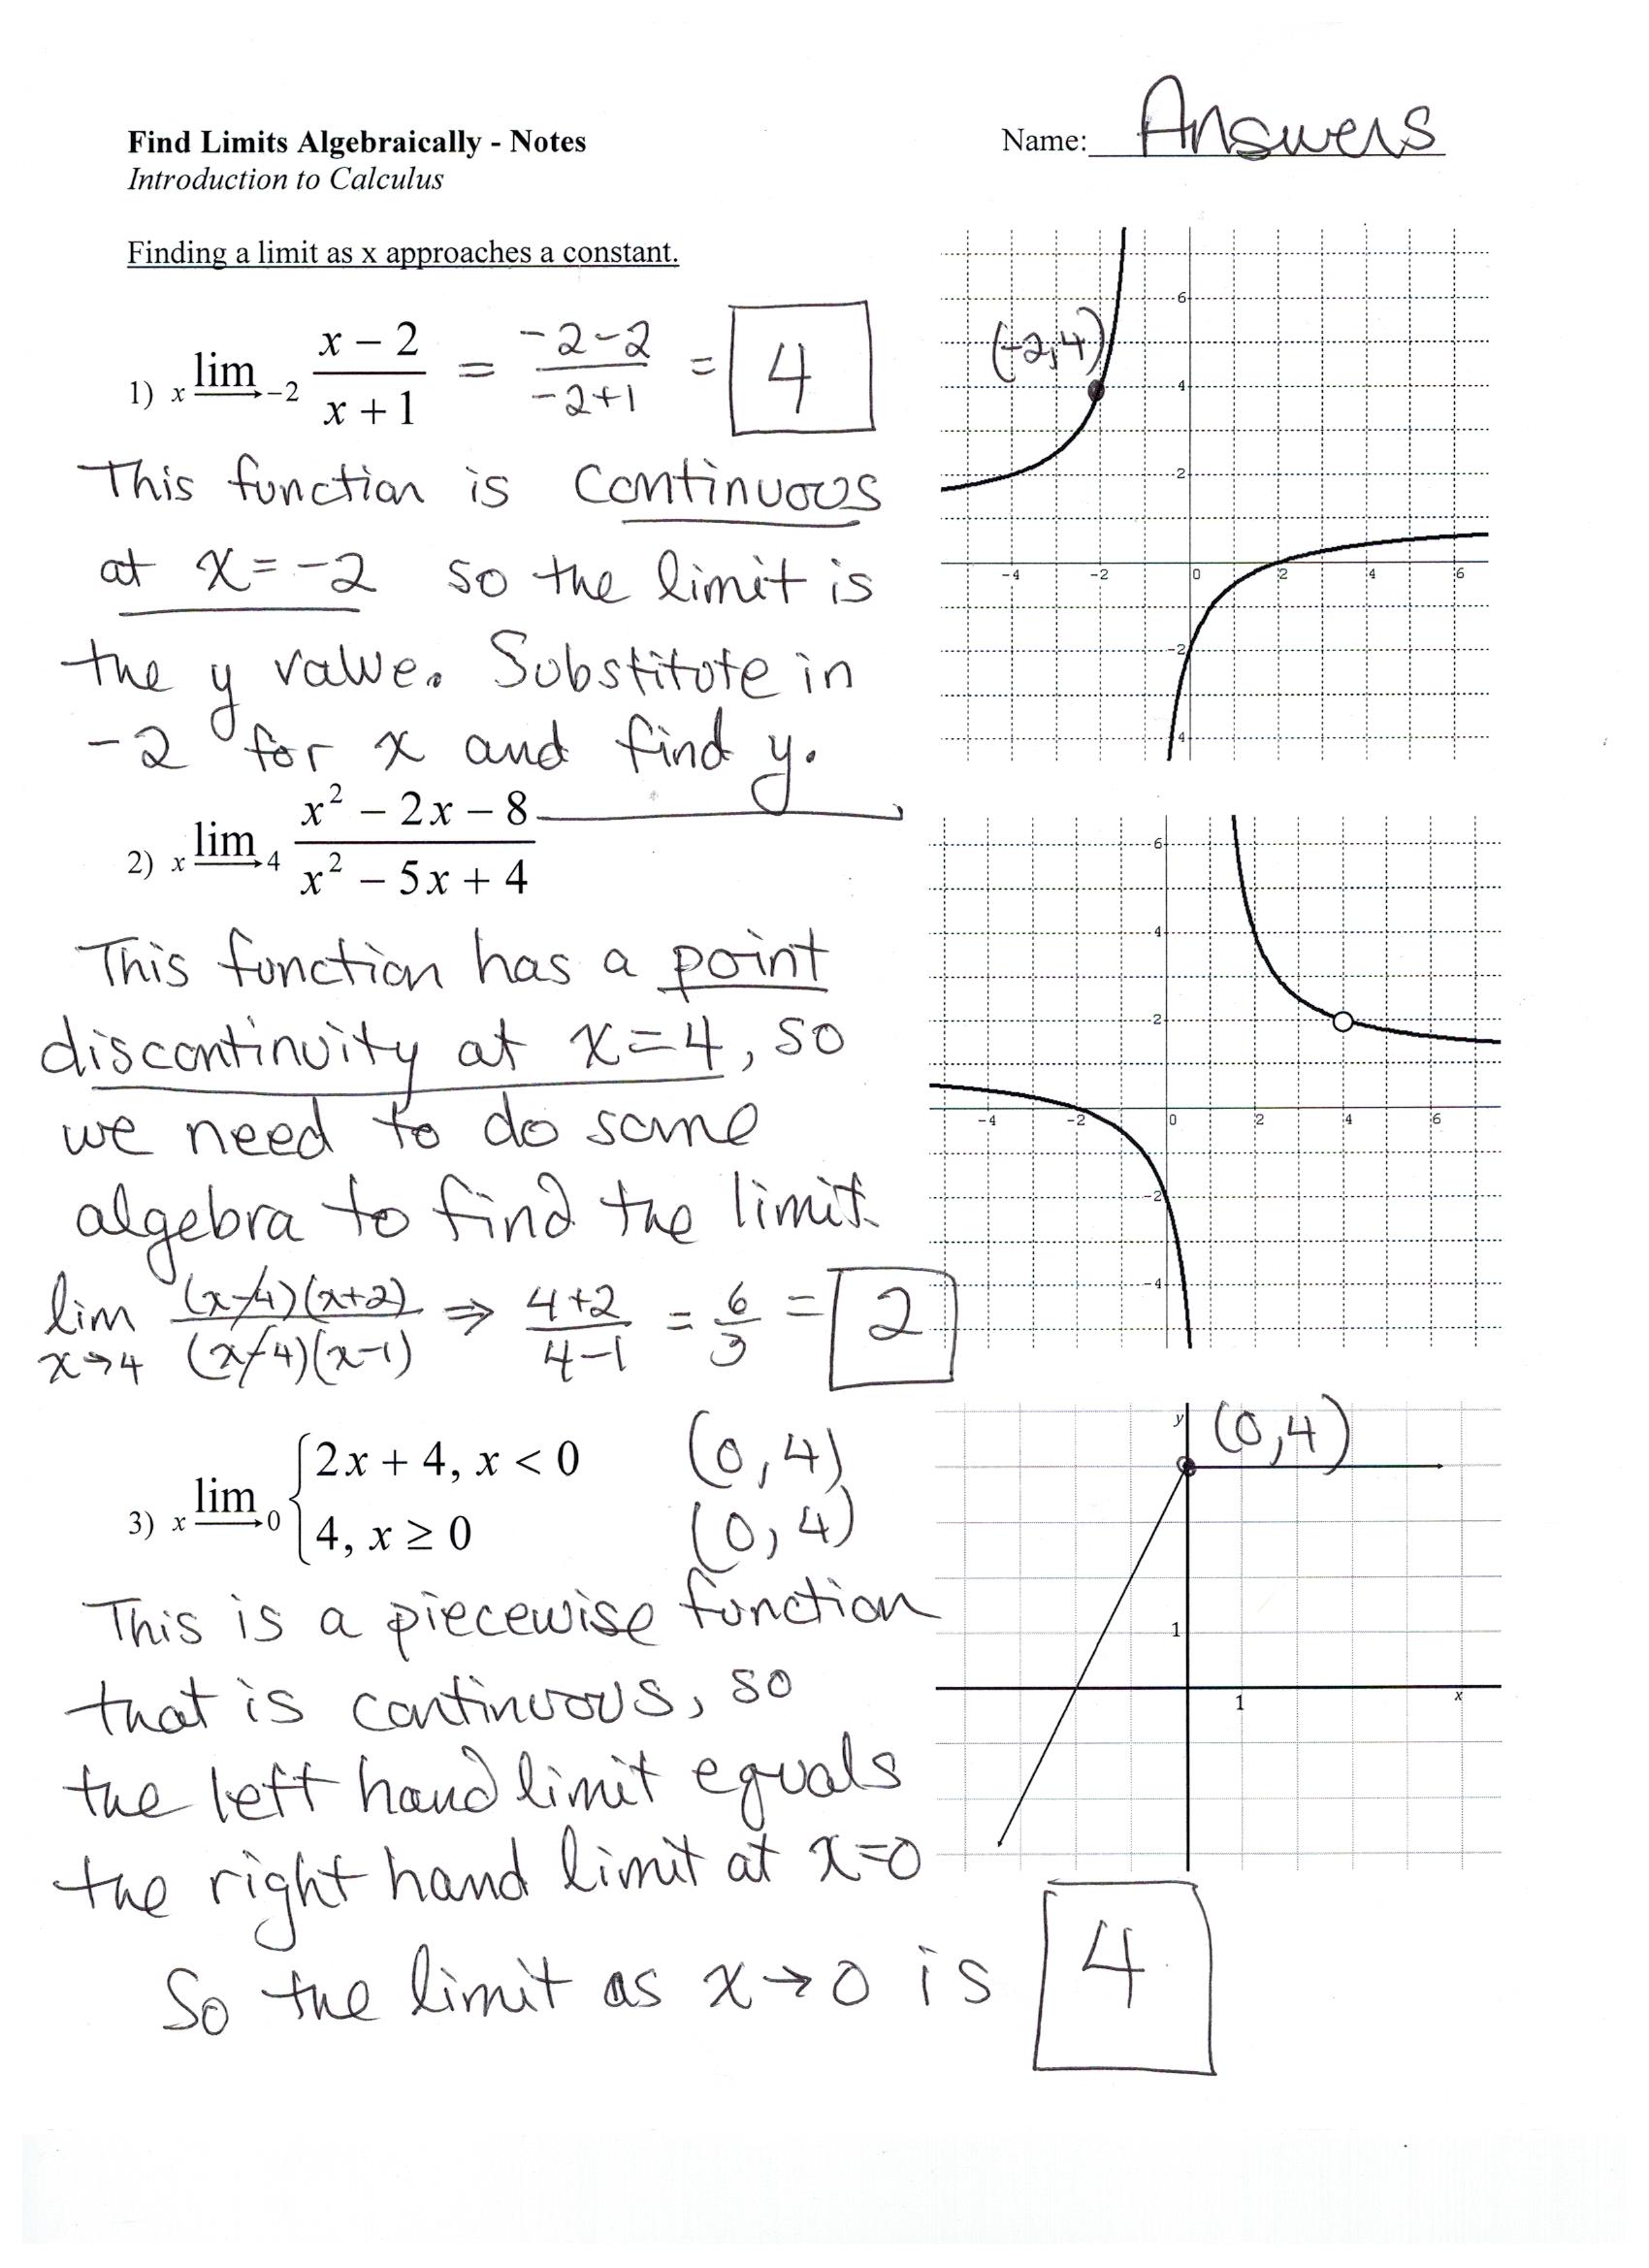 Find Limits Algebraically - Notes
Name: Answers
Introduction to Calculus
Finding a limit as x approaches a constant.
1) lim x→-2 (x - 2)/(x + 1) = (-2-2)/(-2+1) = 4
(-2,4)
6
4
2
-4 -2 0 2 4 6
-2
4
This function is continuous
at x=-2 so the limit is
the y value. Substitute in
-2 for x and find y.
2) lim x→4 (x² - 2x - 8)/(x² - 5x + 4)
6
4
2
-4 -2 0 2 4 6
-2
-4
This function has a point
discontinuity at x=4, so
we need to do some
algebra to find the limit.
lim x→4 (x-4)(x+2)/(x-4)(x-1) ⇒ (4+2)/(4-1) = 6/3 = 2
3) lim x→0 { 2x + 4, x < 0 (0,4)
4, x ≥ 0 (0,4)
y (0,4)
1
1 x
This is a piecewise function
that is continuous, so
the left hand limit equals
the right hand limit at x=0
So the limit as x→0 is 4